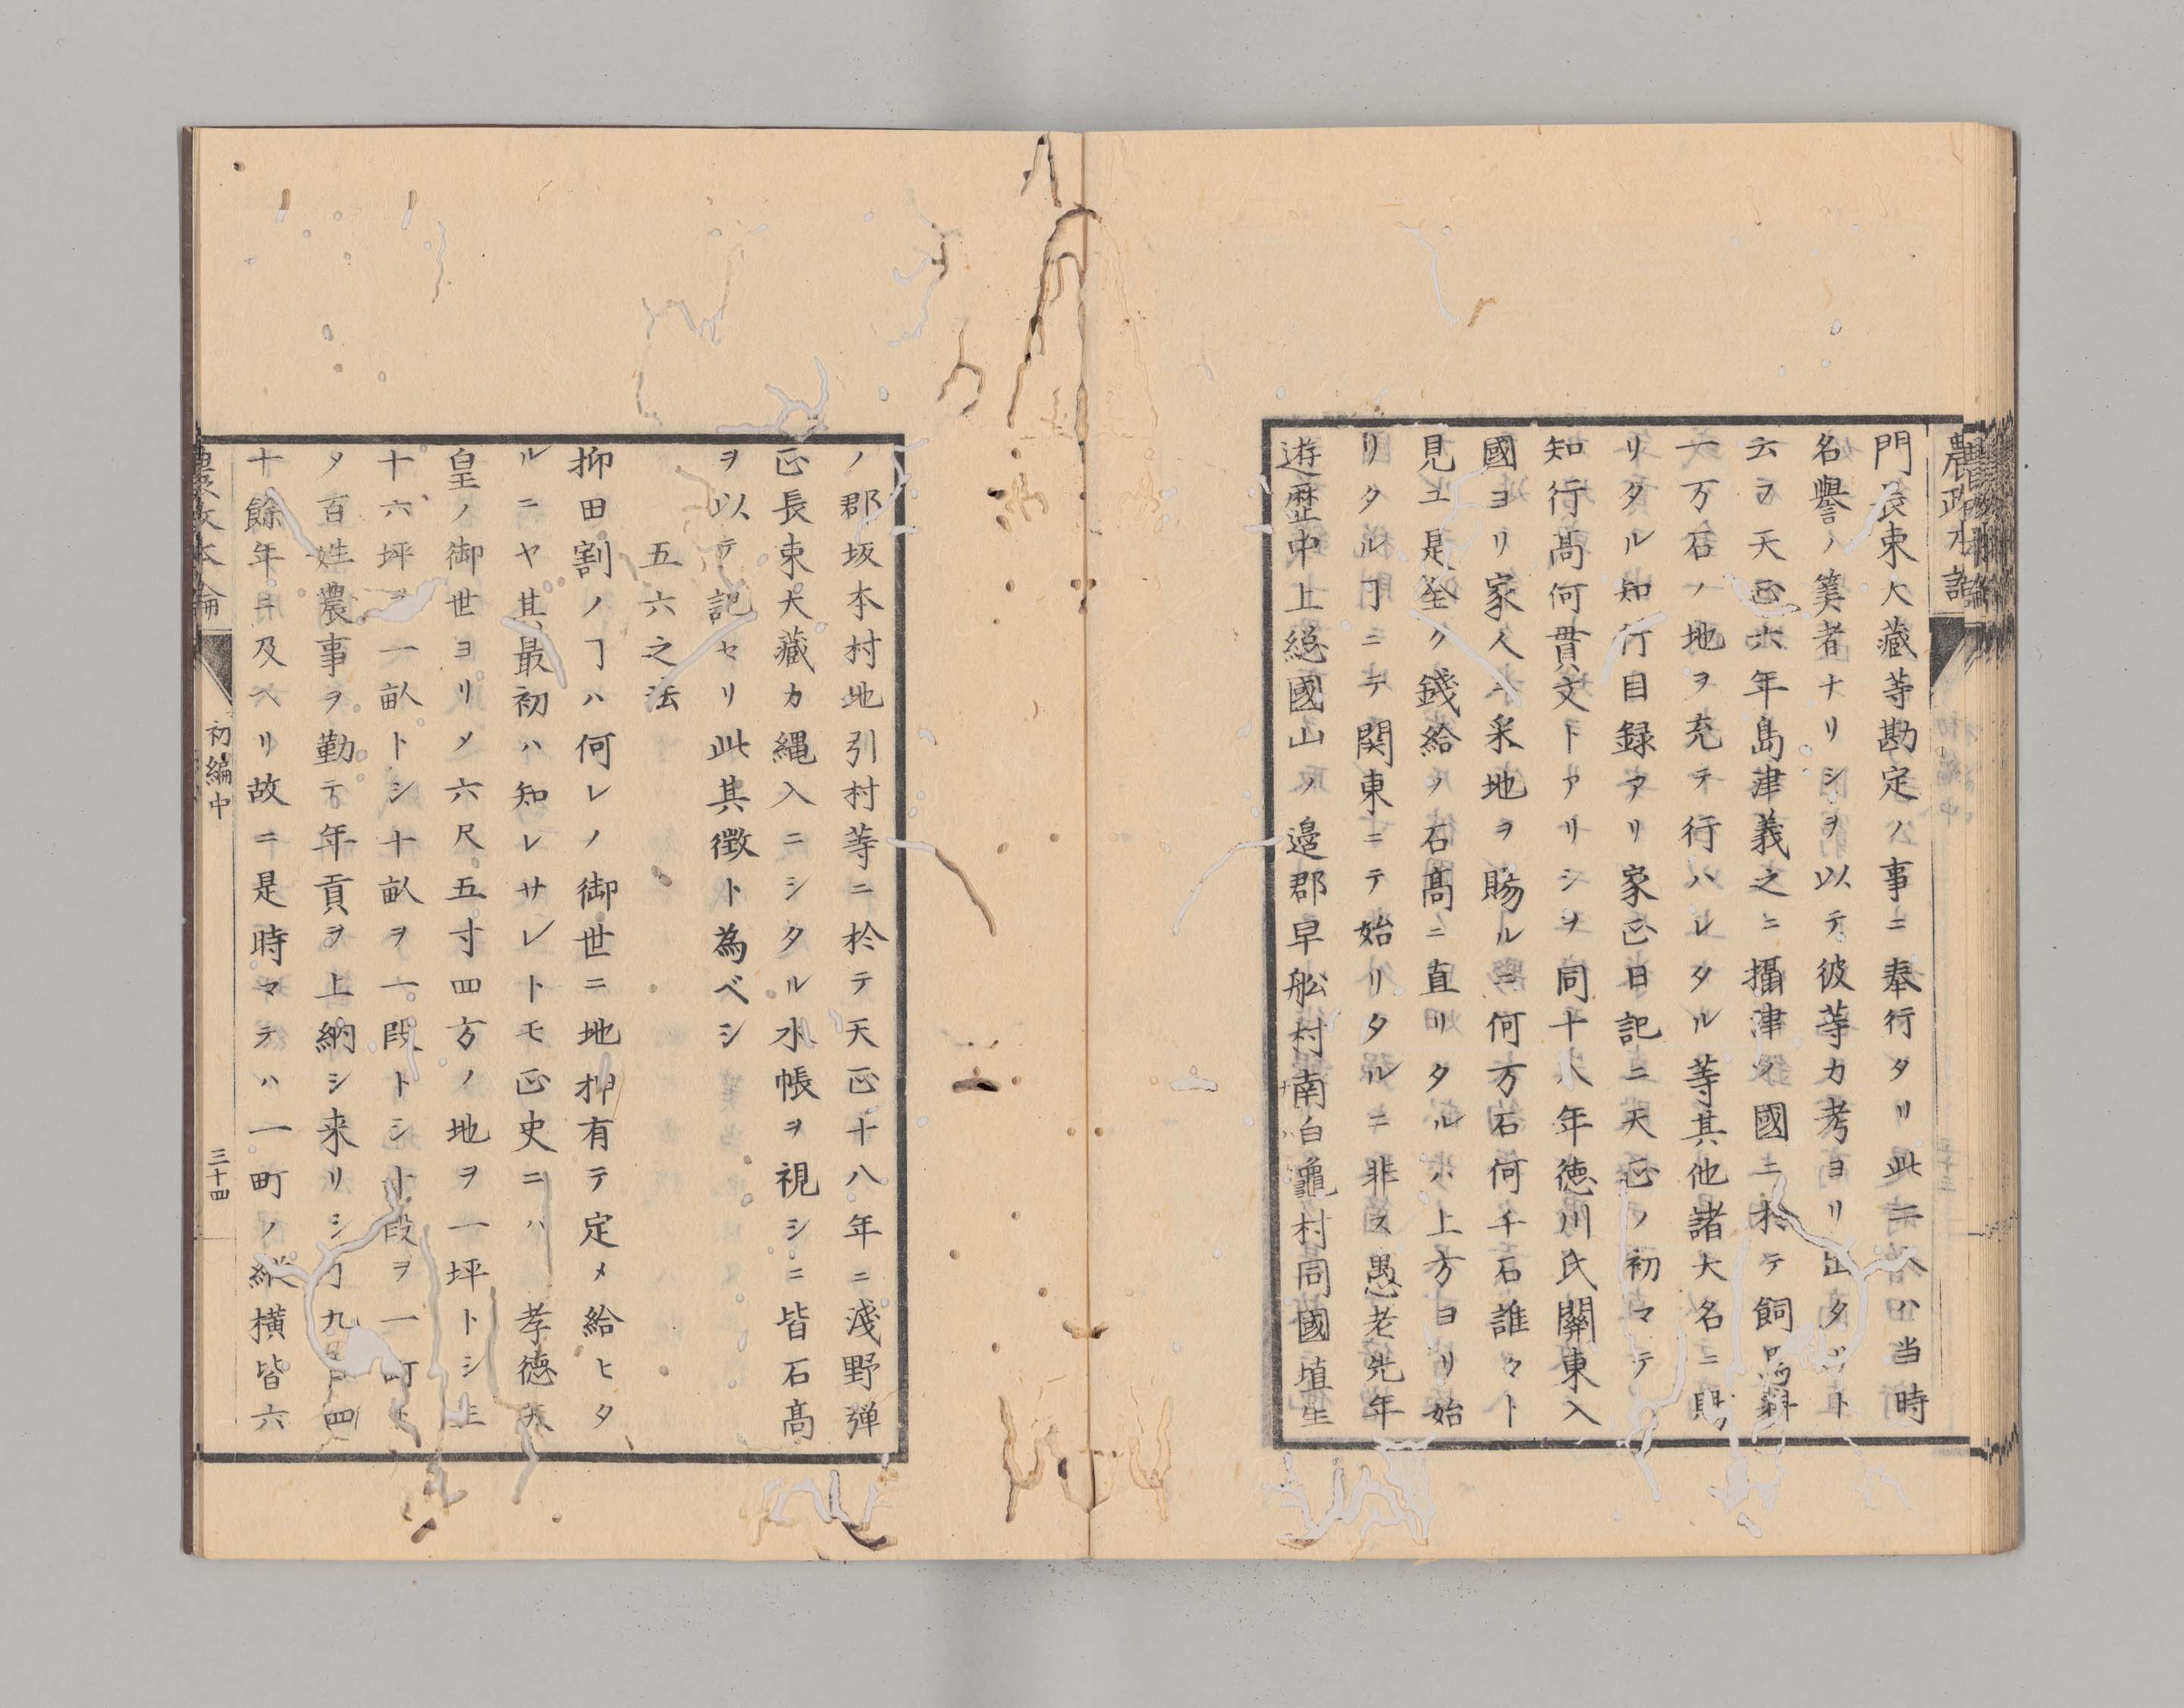 農政本論
門長束大藏等勘定ノ事ニ奉行タリ此二人ハ当時
名譽ノ筭者ナリシヲ以テ彼等カ考ヨリ出タヿト
云フ天正六年島津義之ニ攝津ノ國ニ於テ飼馬料
一万石ノ地ヲ充テ行ハレタル等其他諸大名ニ賜
リタル知行目録アリ家正日記ニ天正ノ初マテ
知行髙何貫文トアリシヲ同十八年徳川氏關東入
國ヨリ家人ニ采地ヲ賜ルニ何万石何千石誰々ト
見エ是全ク錢給ノ石髙ニ直リタルハ上方ヨリ始
リタルヿニテ関東ニテ始リタルニ非ス愚老先年
遊歴中上総國山ノ邉郡早舩村南白龜村同國埴生
ノ郡坂本村地引村等ニ於テ天正十八年ニ淺野弾
正長束大藏カ縄入ニシタル水帳ヲ視シニ皆石髙
ヲ以テ記セリ此其徴ト為ベシ
五六之法
抑田割ノヿハ何レノ御世ニ地押有テ定メ給ヒタ
ルニヤ其最初ハ知レサレトモ正史ニハ 孝徳天
皇ノ御世ヨリメ六尺五寸四方ノ地ヲ一坪トシ三
十六坪ヲ一畝トシ十畝ヲ一段トシ十段ヲ一町ト
メ百姓農事ヲ勤テ年貢ヲ上納シ来リシヿ九百四
十餘年ニ及ヘリ故ニ是時マテハ一町ノ縦横皆六
農政本論
初編中
三十四